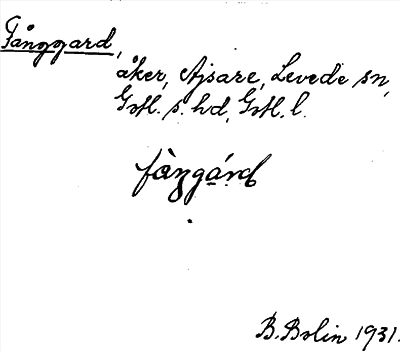 Fånggard,
åker, Ajsare, Levede sn,
Gotl. s. hd, Gotl. l.
B. Bolin 1931.